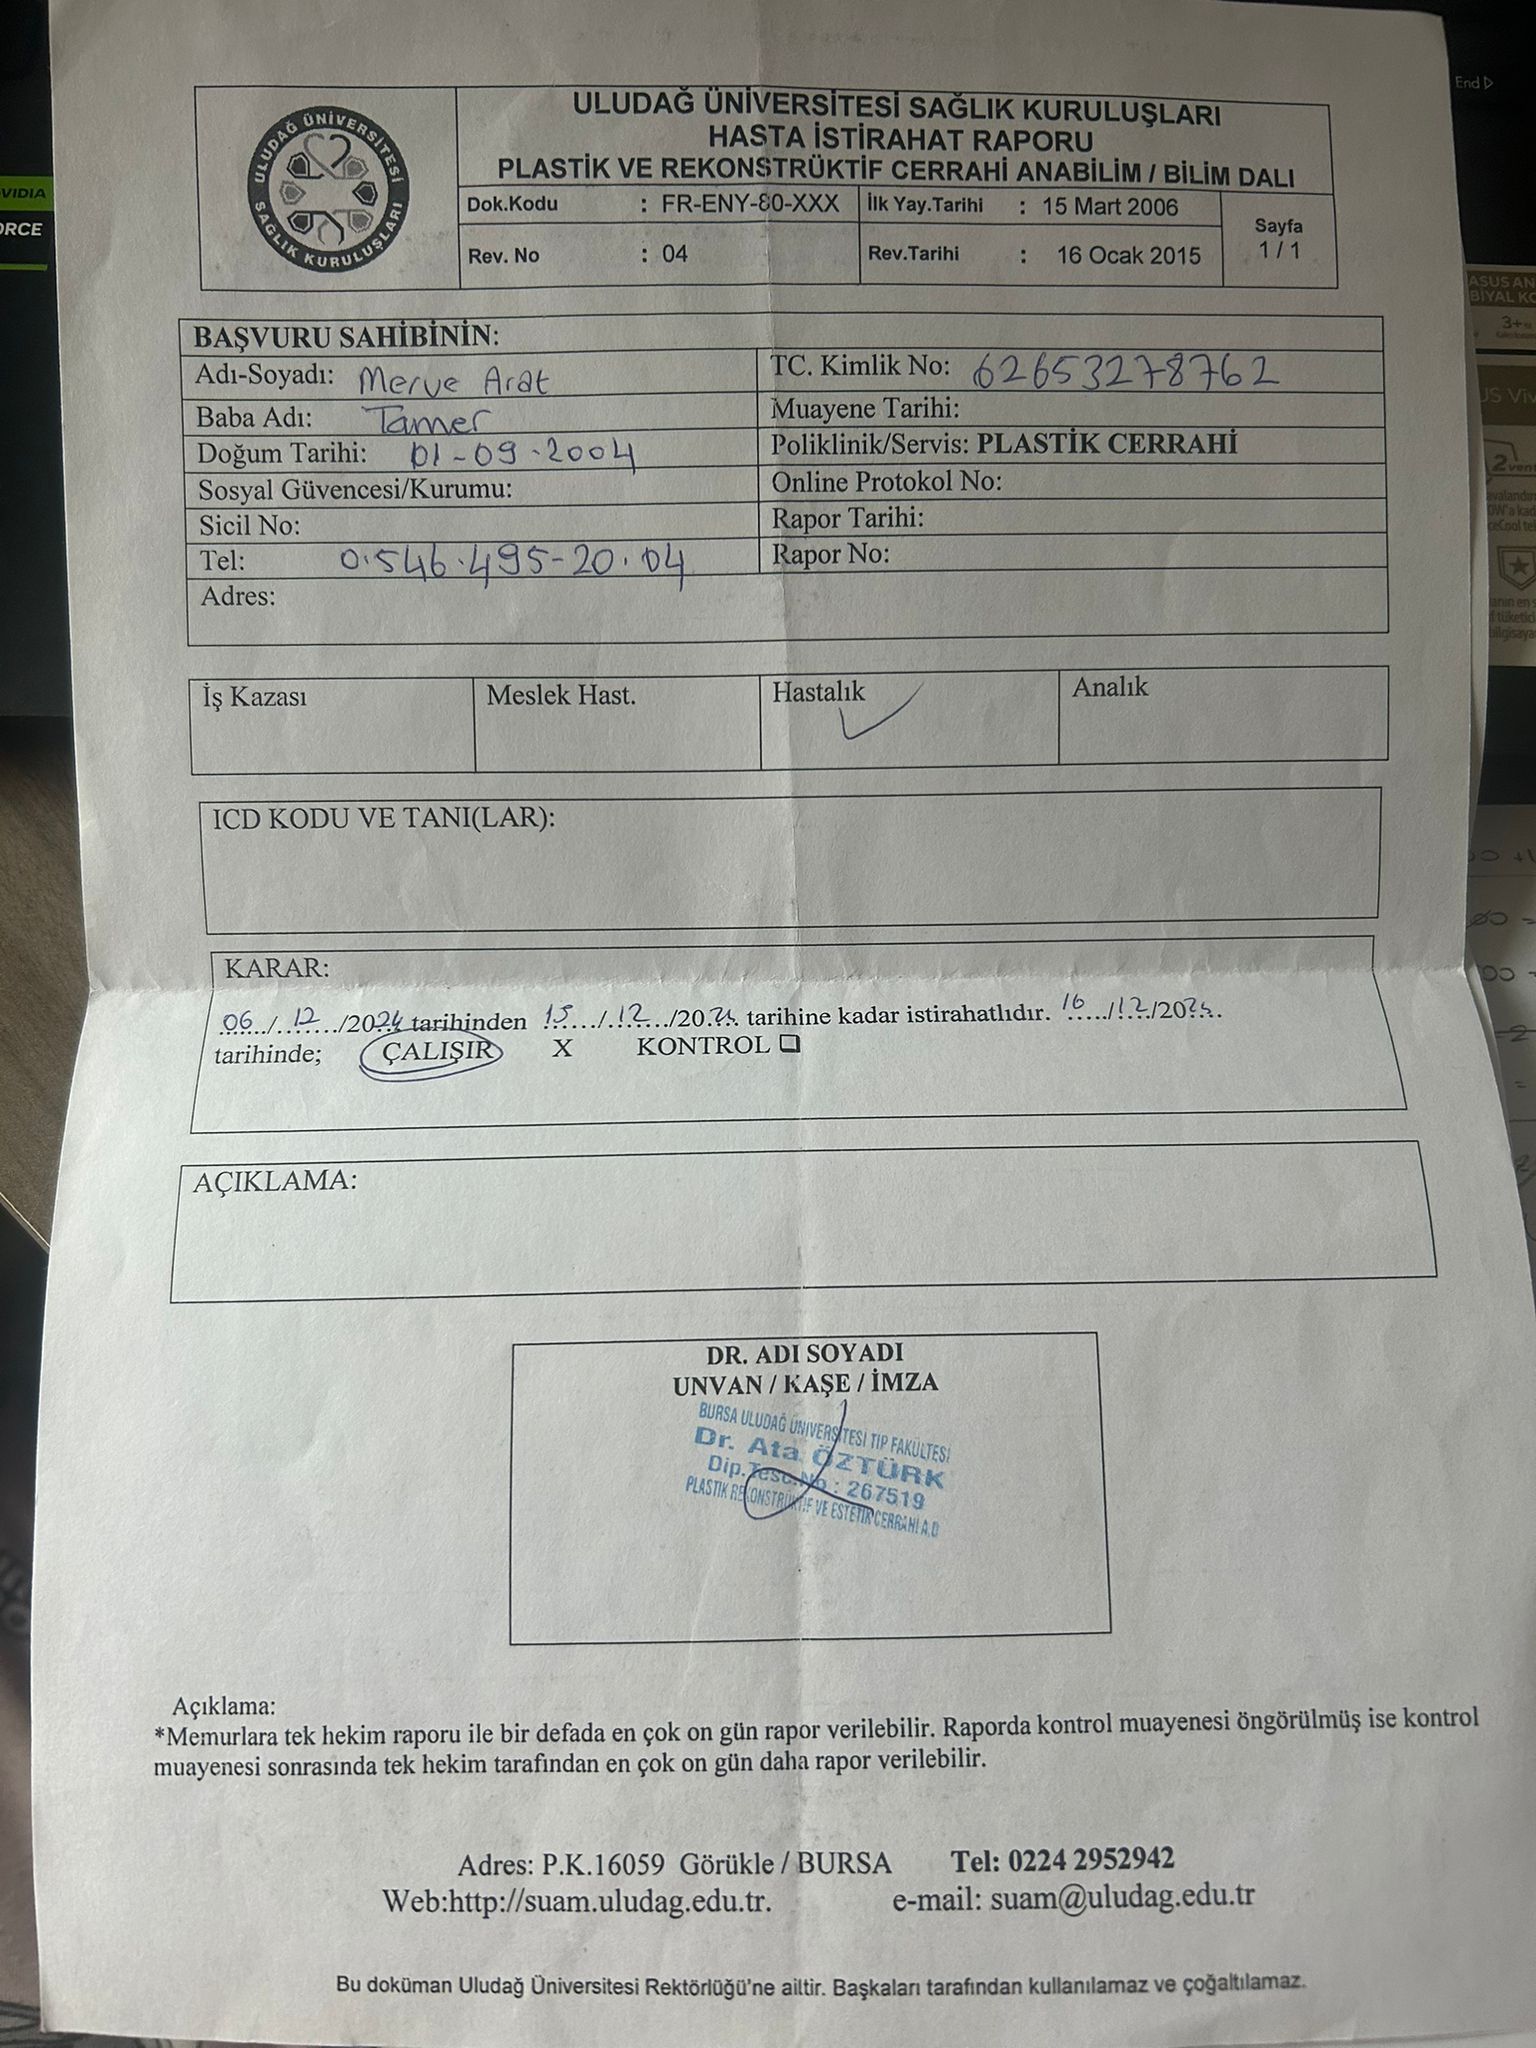 End
ULUDAĞ ÜNİVERSİTESİ
SAĞLIK KURULUŞLARI
ULUDAĞ ÜNİVERSİTESİ SAĞLIK KURULUŞLARI
HASTA İSTİRAHAT RAPORU
PLASTİK VE REKONSTRÜKTİF CERRAHİ ANABİLİM / BİLİM DALI
Dok.Kodu : FR-ENY-80-XXX İlk Yay.Tarihi : 15 Mart 2006
Rev. No : 04 Rev.Tarihi : 16 Ocak 2015
Sayfa
1 / 1
BAŞVURU SAHİBİNİN:
Adı-Soyadı: Merve Arat TC. Kimlik No: 62653278762
Baba Adı: Tamer Muayene Tarihi:
Doğum Tarihi: 01-09-2004 Poliklinik/Servis: PLASTİK CERRAHİ
Sosyal Güvencesi/Kurumu: Online Protokol No:
Sicil No: Rapor Tarihi:
Tel: 0.546.495-20.04 Rapor No:
Adres:
İş Kazası Meslek Hast. Hastalık Analık
ICD KODU VE TANI(LAR):
KARAR:
06/12/2024 tarihinden 15/12/2024 tarihine kadar istirahatlıdır. 16/12/2024
tarihinde; ÇALIŞIR X KONTROL
AÇIKLAMA:
DR. ADI SOYADI
UNVAN / KAŞE / İMZA
BURSA ULUDAĞ ÜNİVERSİTESİ TIP FAKÜLTESİ
Dr. Ata ÖZTÜRK
Dip.Tesc.No : 267519
PLASTİK REKONSTRÜKTİF VE ESTETİK CERRAHİ A.D
Açıklama:
*Memurlara tek hekim raporu ile bir defada en çok on gün rapor verilebilir. Raporda kontrol muayenesi öngörülmüş ise kontrol
muayenesi sonrasında tek hekim tarafından en çok on gün daha rapor verilebilir.
Adres: P.K.16059 Görükle / BURSA Tel: 0224 2952942
Web:http://suam.uludag.edu.tr. e-mail: suam@uludag.edu.tr
Bu doküman Uludağ Üniversitesi Rektörlüğü'ne aittir. Başkaları tarafından kullanılamaz ve çoğaltılamaz.